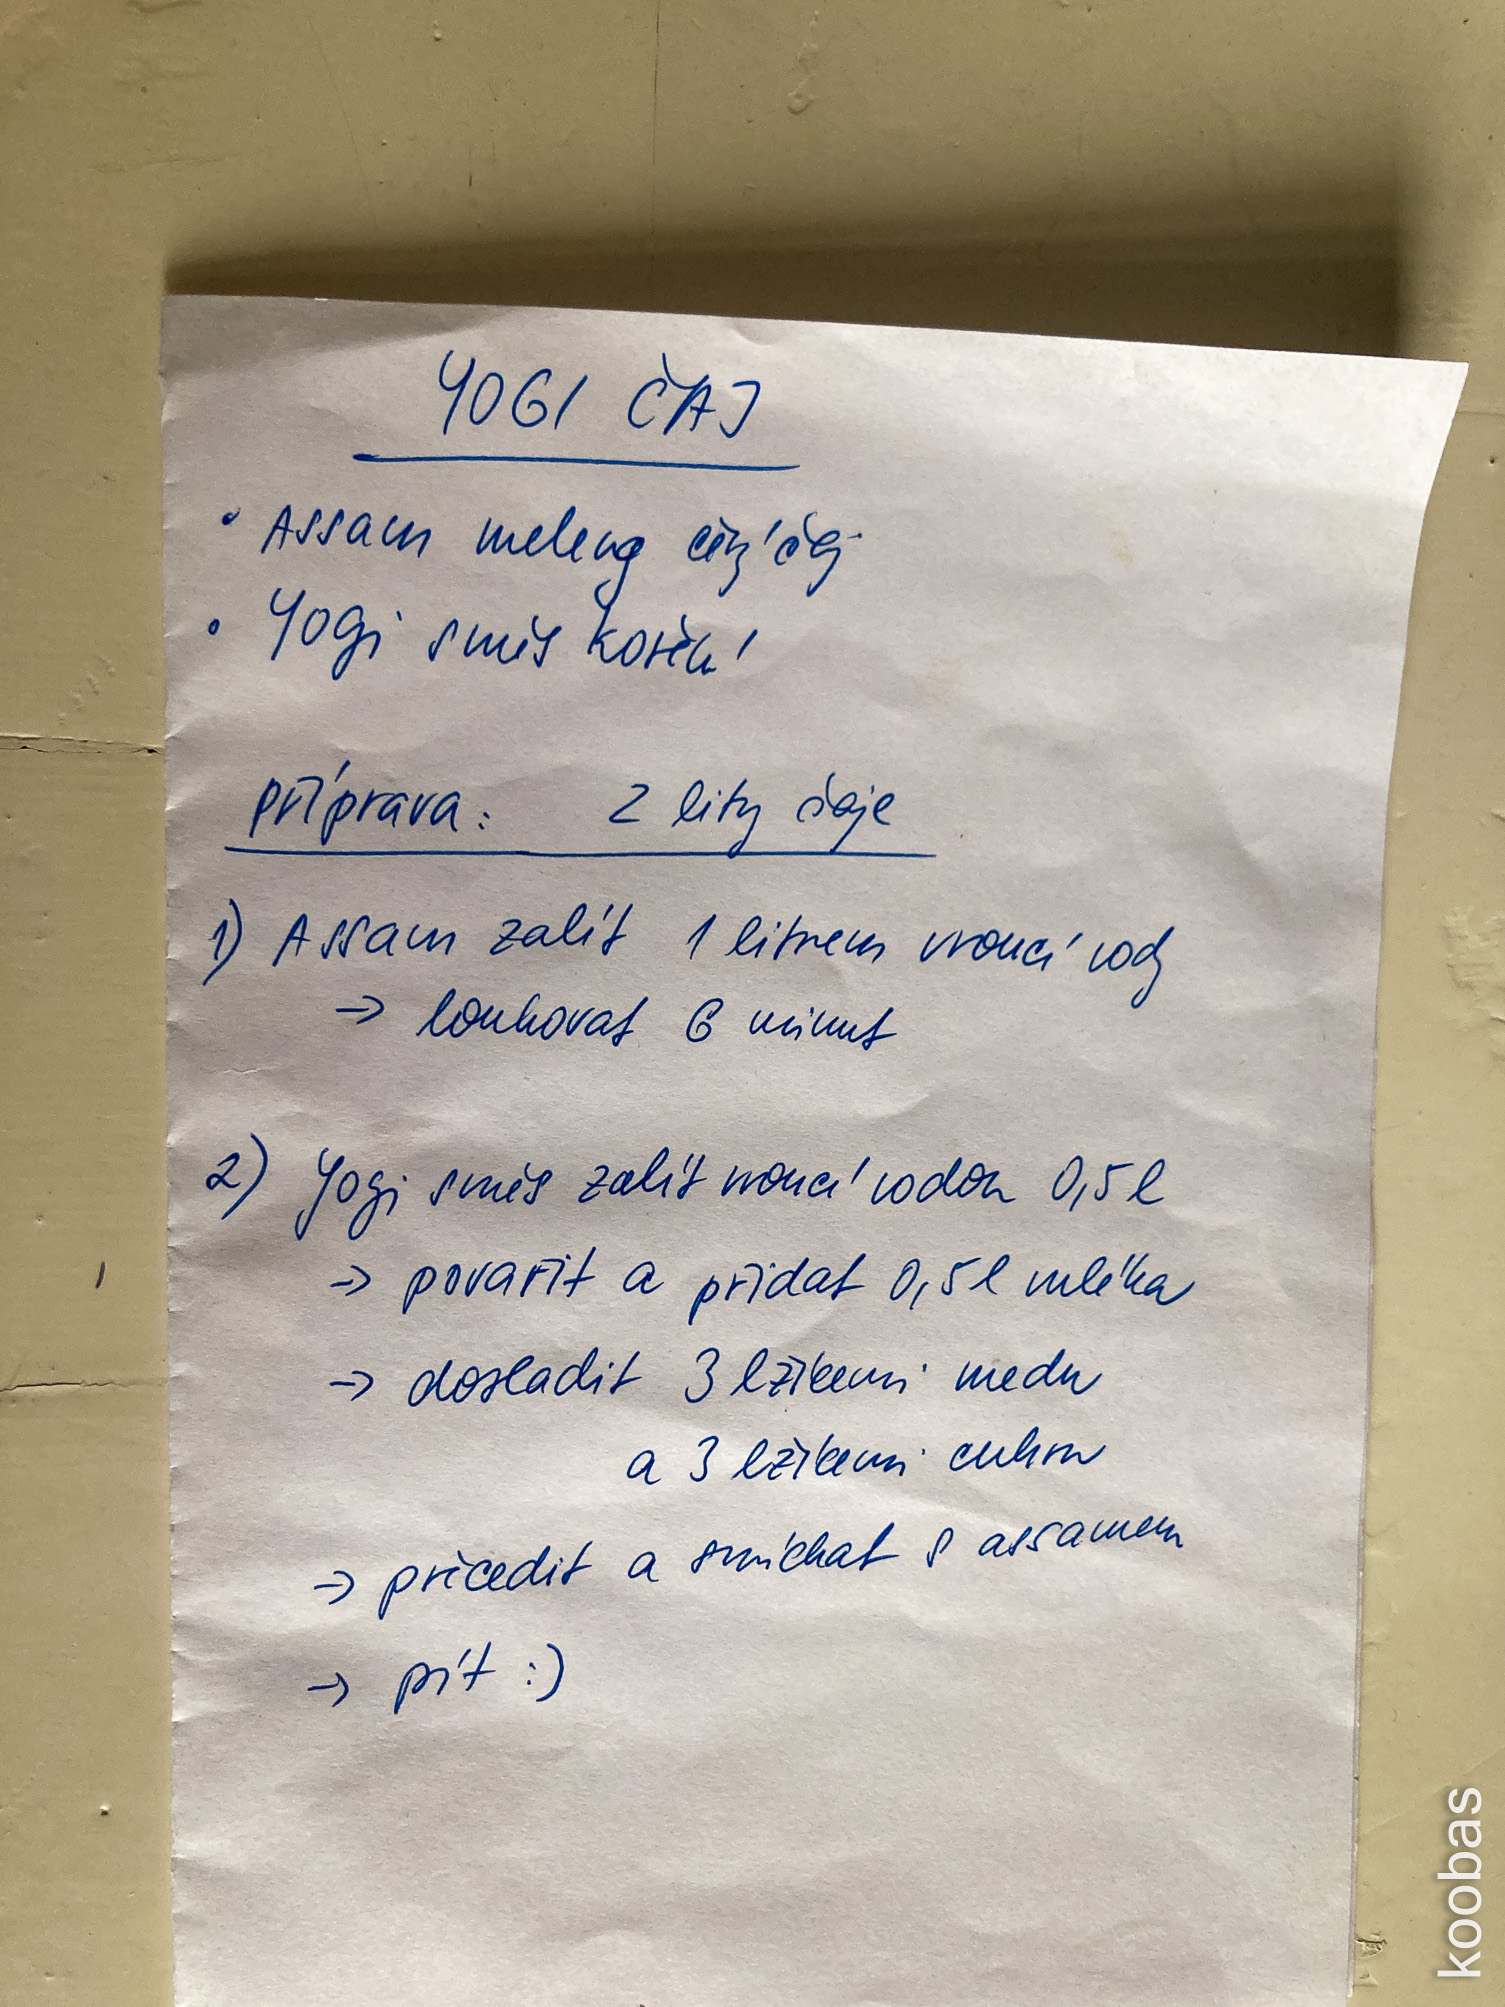 YOGI ČAJ
• Assam meleng černý čaj
• Yogi směs koření
příprava: 2 litry čaje
1) Assam zalít 1 litrem vroucí vody
→ louhovat 6 minut
2) Yogi směs zalít vroucí vodou 0,5l
→ povařit a přidat 0,5l mléka
→ dosladit 3 lžícemi medu
a 3 lžícemi cukru
→ přecedit a smíchat s assamem
→ pít :)
koobas